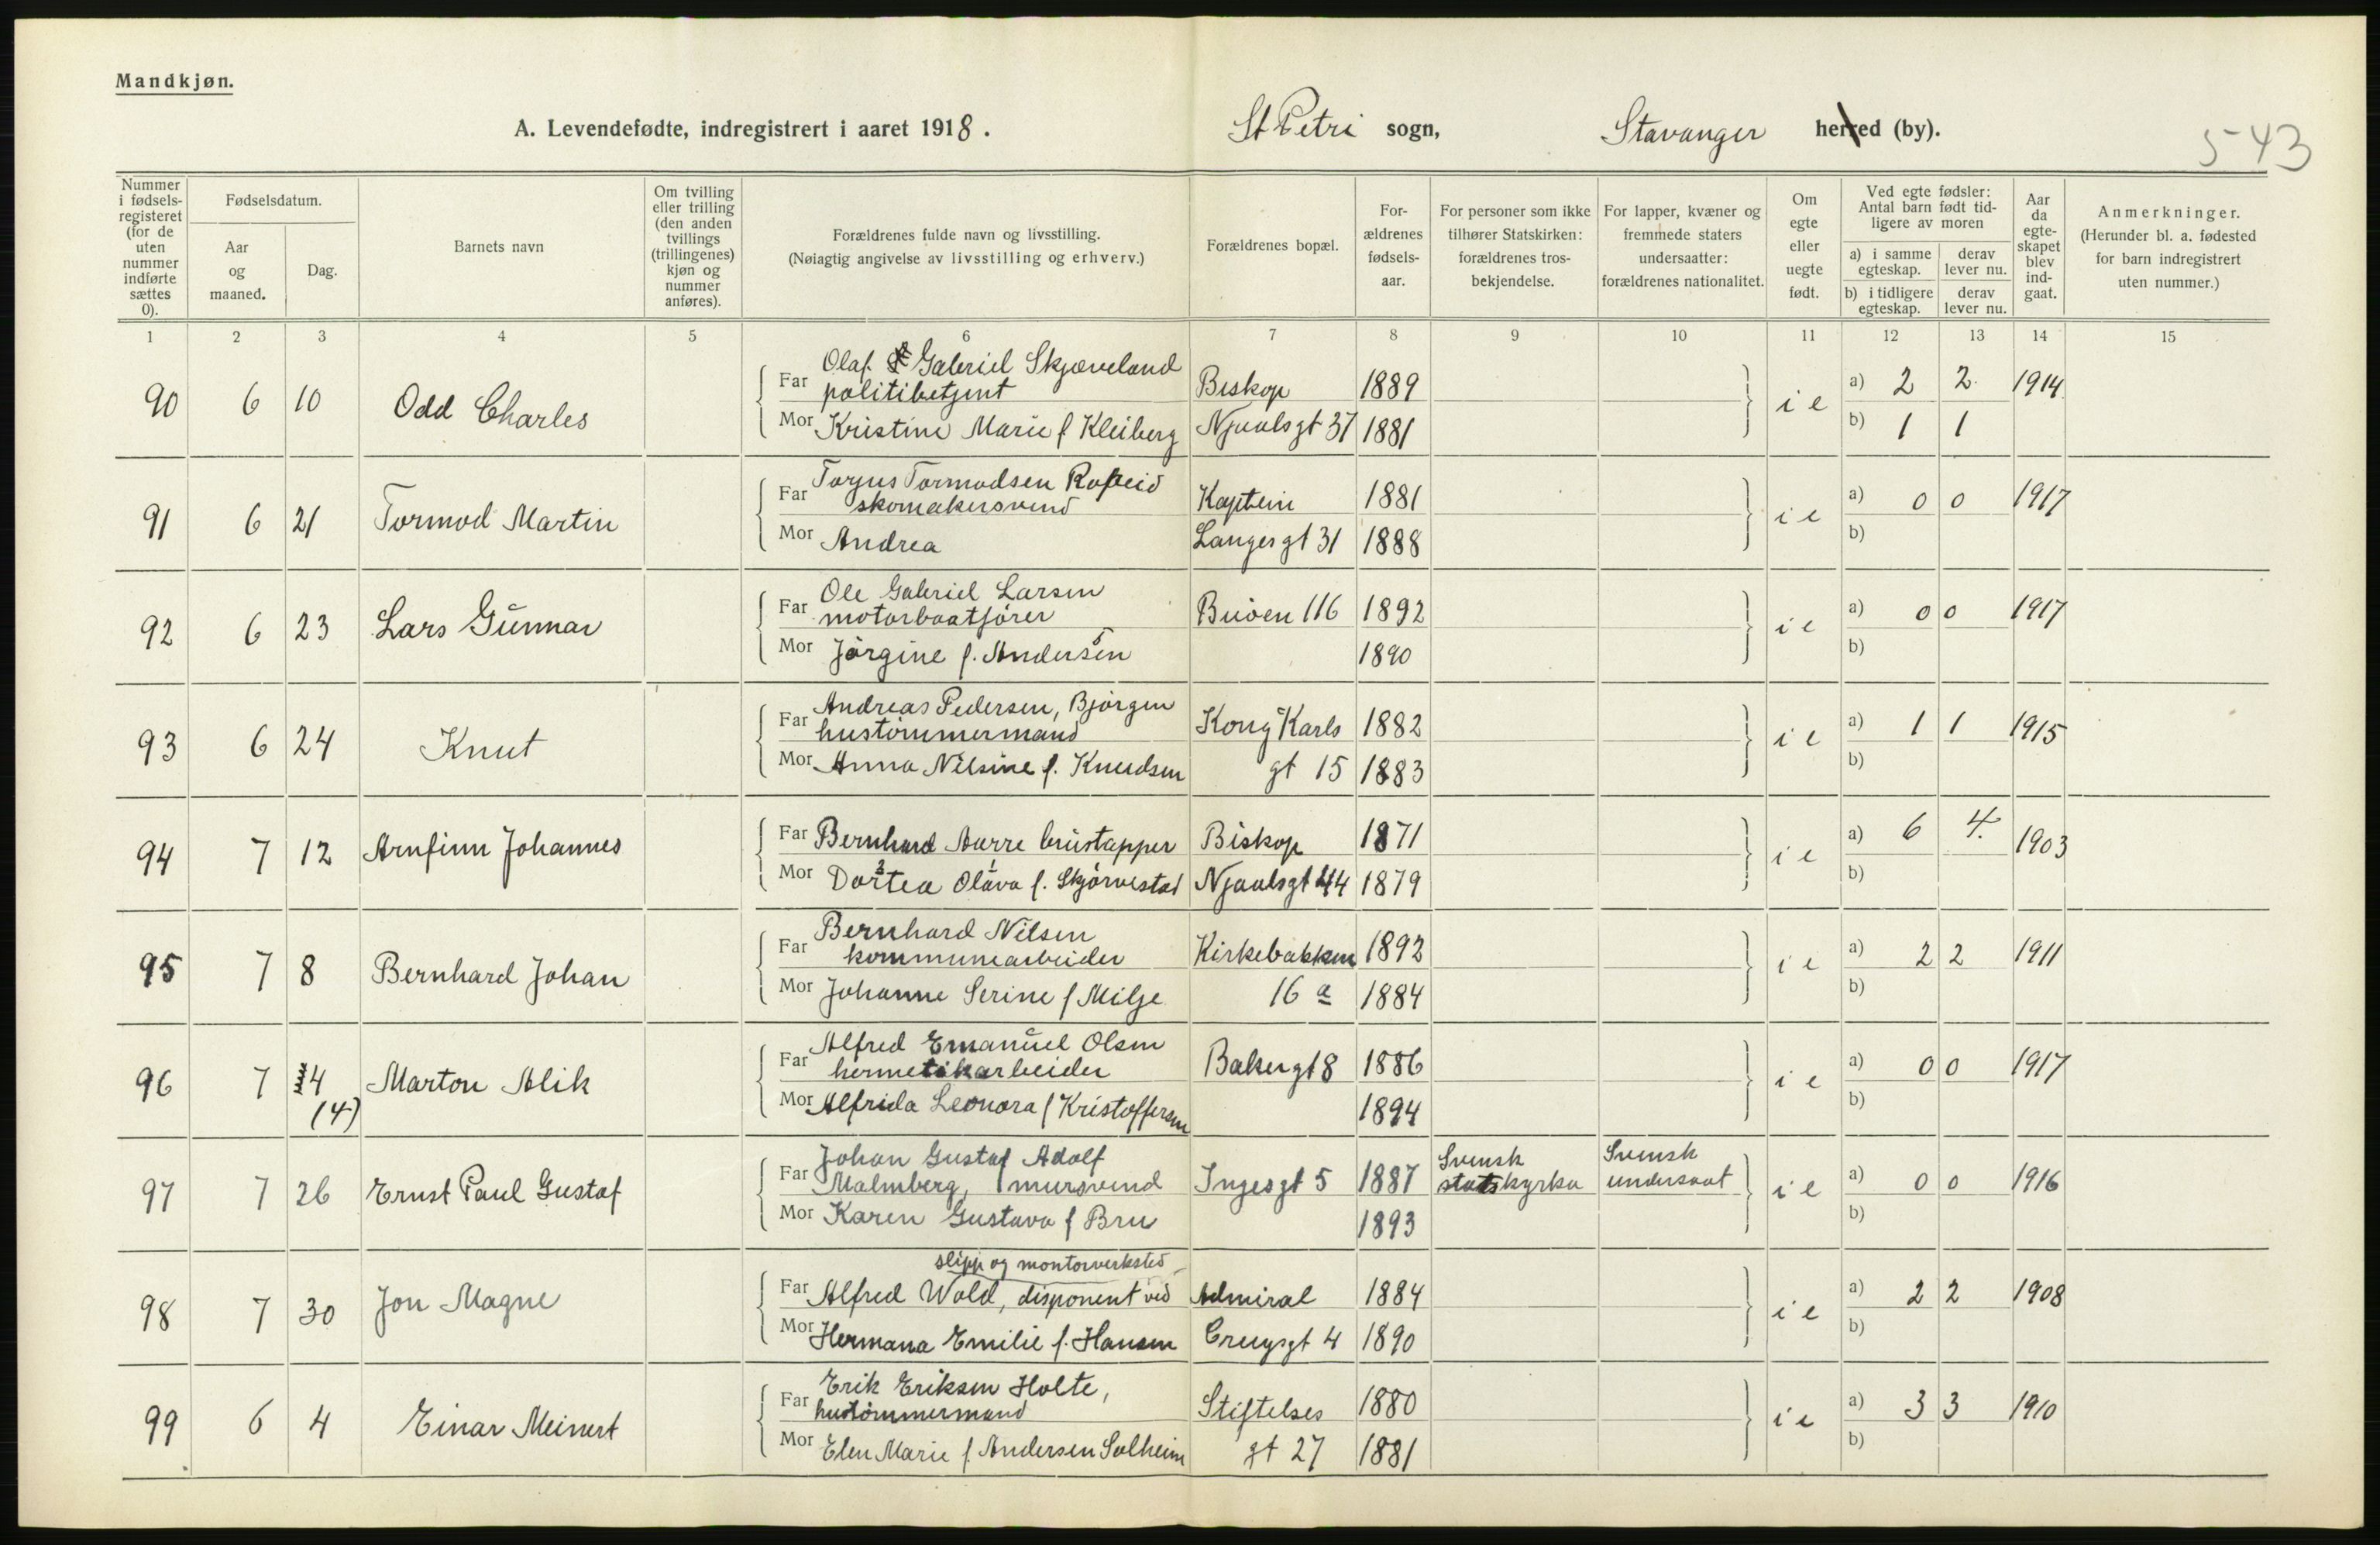 Mandkjøn.
A. Levendefødte, indregistrert i aaret 1918. St Petri sogn, Stavanger herred (by).
543
Nummer i fødsels-registeret (for de uten nummer indførte sættes 0).
Fødselsdatum.
Aar og maaned.
Dag.
Barnets navn
Om tvilling eller trilling (den anden tvillings (trillingenes) kjøn og nummer anføres).
Forældrenes fulde navn og livsstilling.
(Nøiagtig angivelse av livsstilling og erhverv.)
Forældrenes bopæl.
For-ældrenes fødsels-aar.
For personer som ikke tilhører Statskirken: forældrenes tros-bekjendelse.
For lapper, kvæner og fremmede staters undersaatter: forældrenes nationalitet.
Om egte eller uegte født.
Ved egte fødsler: Antal barn født tid-ligere av moren
a) i samme egteskap.
derav lever nu.
b) i tidligere egteskap.
derav lever nu.
Aar da egte-skapet blev ind-gaat.
Anmerkninger.
(Herunder bl. a. fødested for barn indregistrert uten nummer.)
1 2 3 4 5 6 7 8 9 10 11 12 13 14 15
Olaf Gabriel Skjæveland
90 6 10 Odd Charles Far politibetjent Biskop 1889 i e a) 2 2 1914
Mor Kristine Marie f Kleiberg Njaalsgt 37 1881 b) 1 1
Torjus Tormodsen Ropeid
91 6 21 Tormod Martin Far skomakersvend Kaptein 1881 i e a) 0 0 1917
Mor Andrea Langesgt 31 1888 b)
Ole Gabriel Larsen
92 6 23 Lars Gunnar Far motorbaatfører Buøen 116 1892 i e a) 0 0 1917
Mor Jørgine f. Andersen 1890 b)
Andreas Pedersen, Bjørgen
93 6 24 Knut Far hustømmermand Kong Karls 1882 i e a) 1 1 1915
Mor Anna Nilsine f. Knudsen gt 15 1883 b)
94 7 12 Arnfinn Johannes Far Bernhard Aarre brustapper Biskop 1871 i e a) 6 4. 1903
Mor Dortea Olava f. Skjørvestad Njaalsgt 44 1879 b)
Bernhard Nilsen
95 7 8 Bernhard Johan Far kommunearbeider Kirkebakken 1892 i e a) 2 2 1911
Mor Johanne Serine f Milje 16 a 1884 b)
Alfred Emanuel Olsen
96 7 4 Marton Alik Far hermetikarbeider Bakergt 8 1886 i e a) 0 0 1917
(4) Mor Alfrida Leonora f Kristoffersen 1894 b)
Johan Gustaf Adolf Svensk Svensk
97 7 26 Ernst Paul Gustaf Far Malmberg, mursvend Ingesgt 5 1887 statskyrka undersaat i e a) 0 0 1916
Mor Karen Gustava f Bru 1893 b)
slipp og montorverksted
98 7 30 Jon Magne Far Alfred Wold, disponent ved Admiral 1884 i e a) 2 2 1908
Mor Hermana Emilie f. Hansen Cruysgt 4 1890 b)
Erik Eriksen Holte,
99 6 4 Einar Meinert Far hustømmermand Stiftelses 1880 i e a) 3 3 1910
Mor Elen Marie f. Andersen Solheim gt 27 1881 b)